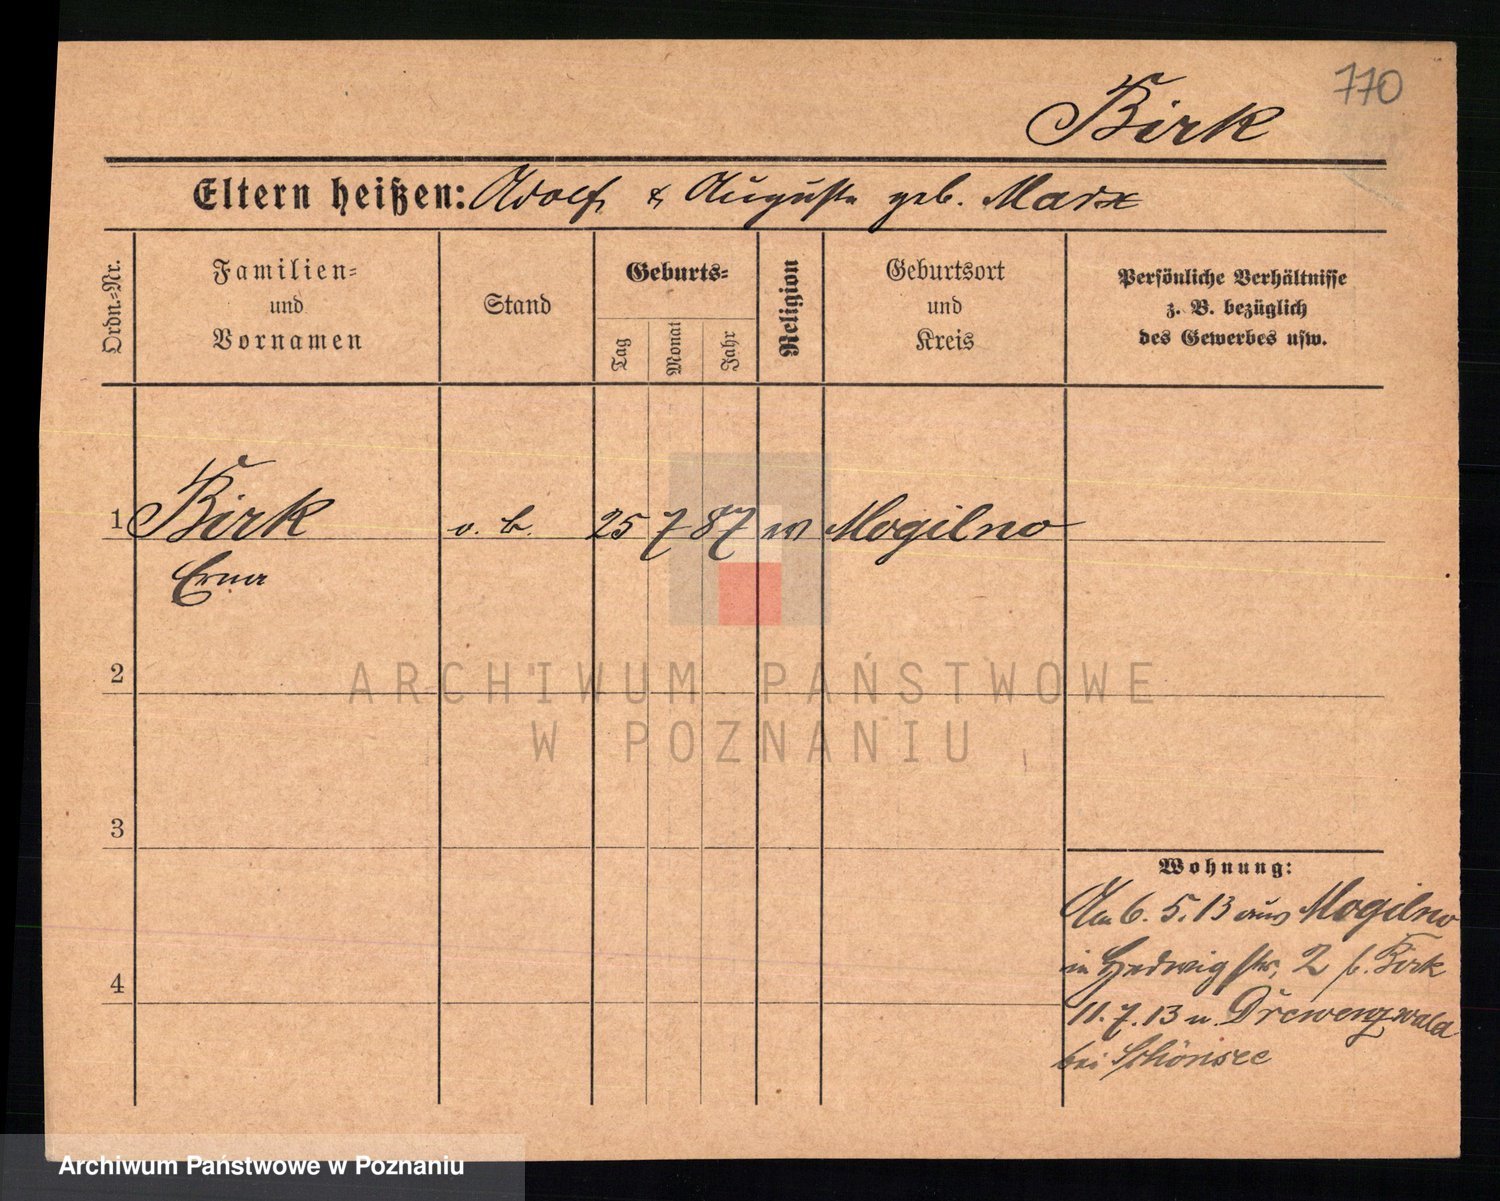 770
Birk
Eltern heißen: Adolf & Auguste geb. Marx
Ordn.-Nr.
Familien- und Vornamen
Stand
Geburts-
Tag
Monat
Jahr
Religion
Geburtsort und Kreis
Persönliche Verhältnisse
z. B. bezüglich
des Gewerbes usw.
1 Birk o. b. 25 7 87 Mogilno
Erna
2
ARCHIWUM PAŃSTWOWE
W POZNANIU
3
4
Wohnung:
Am 6. 5. 13 aus Mogilno
in Hedwigstr. 2 b. Birk
11. 7. 13 n. Drewenzwald
bei Schönsee
Archiwum Państwowe w Poznaniu